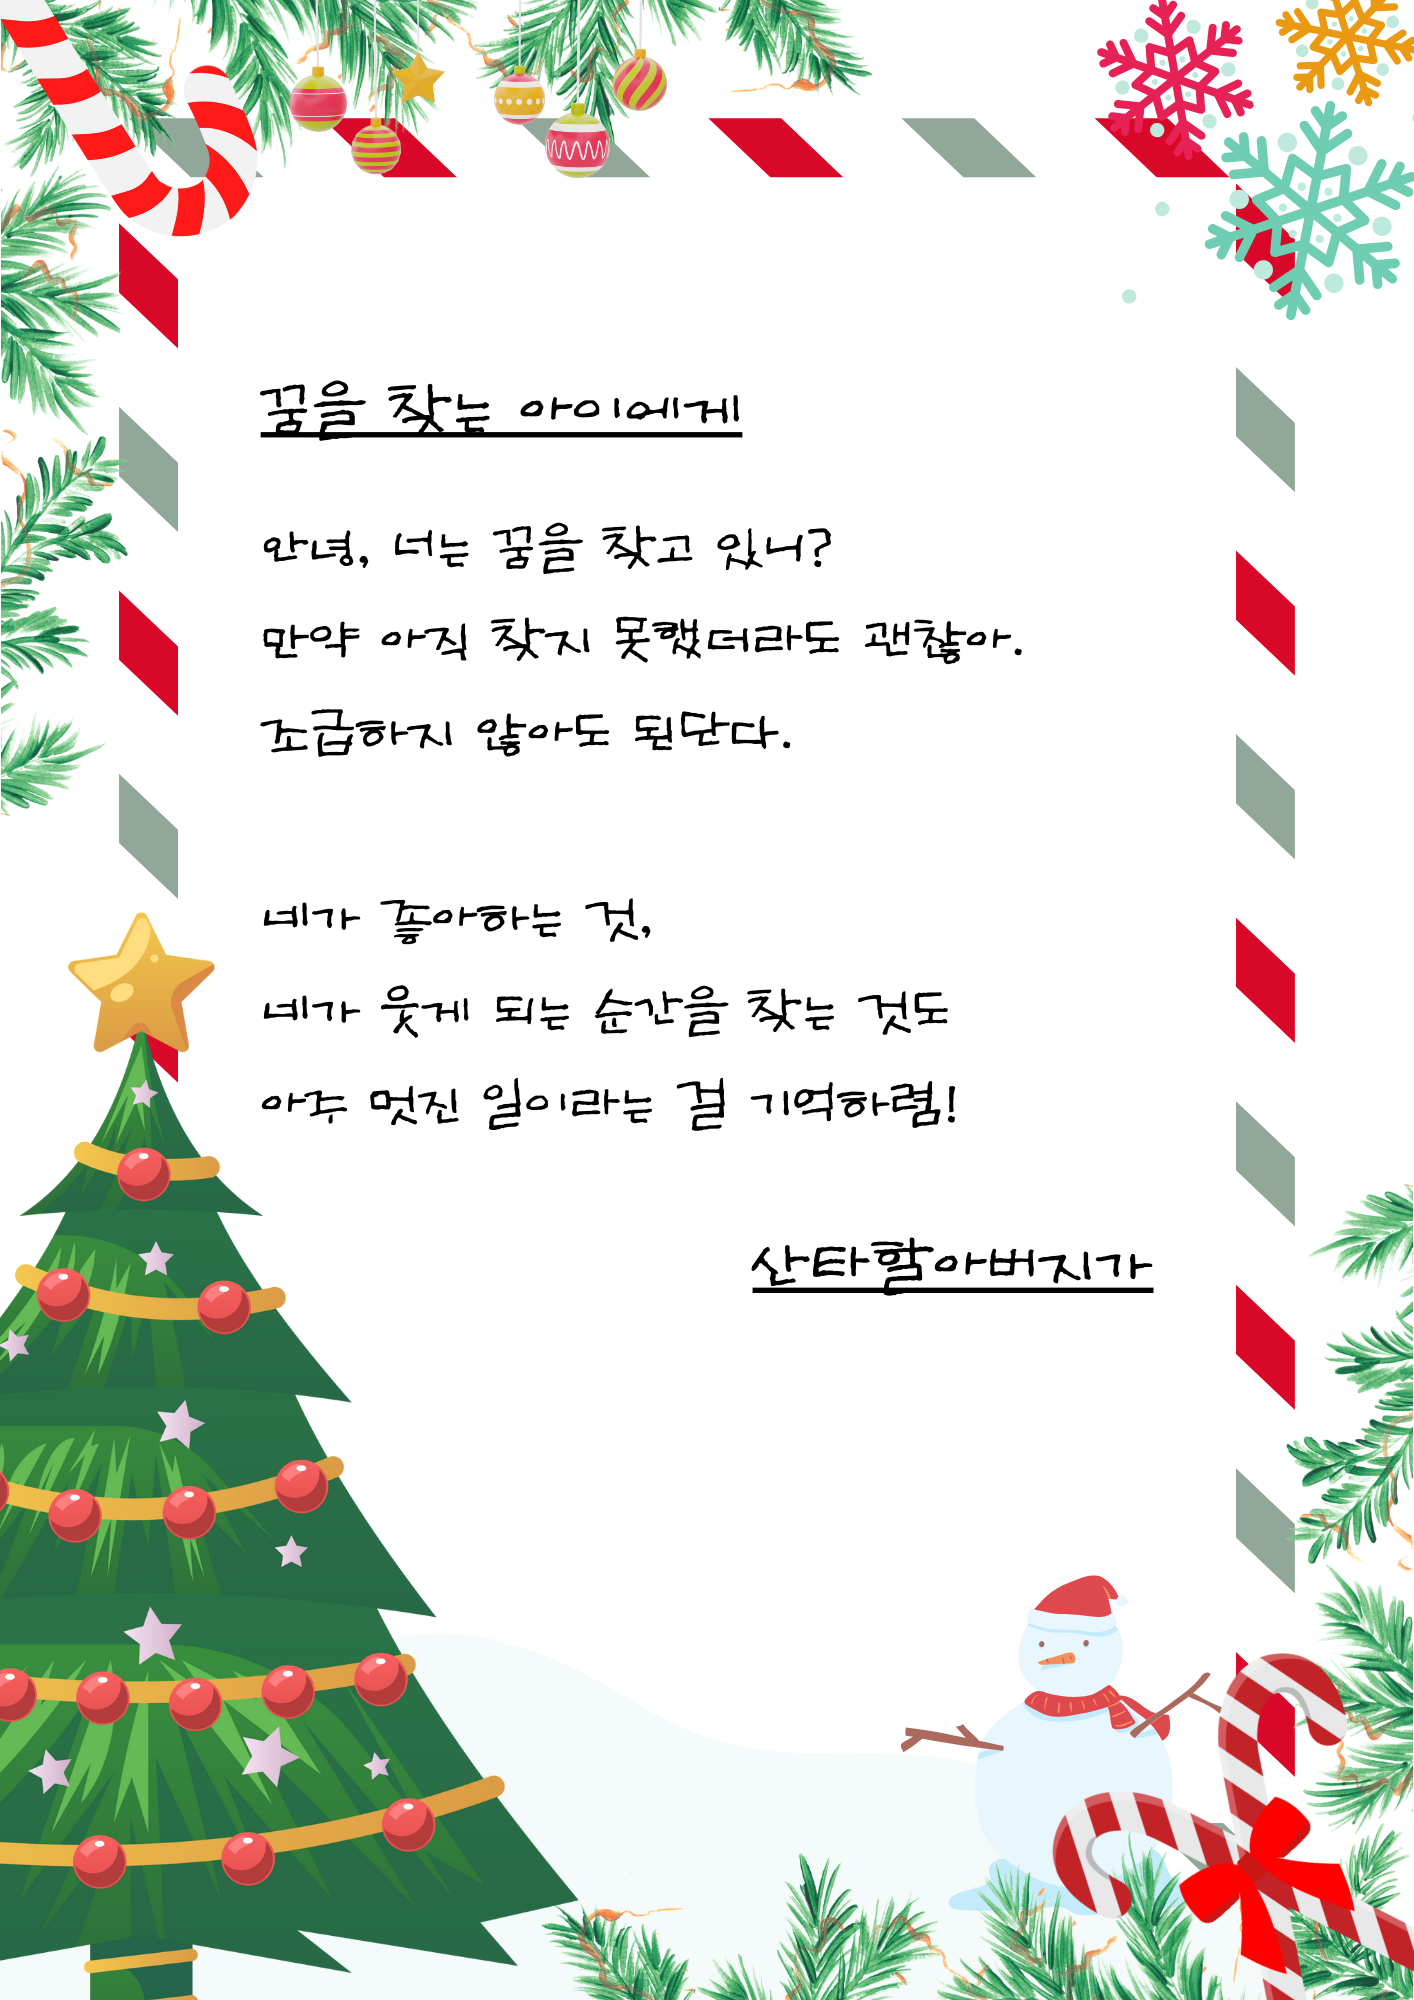 꿈을 찾는 아이에게
안녕, 너는 꿈을 찾고 있니?
만약 아직 찾지 못했더라도 괜찮아.
조급하지 않아도 된단다.
네가 좋아하는 것,
네가 웃게 되는 순간을 찾는 것도
아주 멋진 일이라는 걸 기억하렴!
산타할아버지가